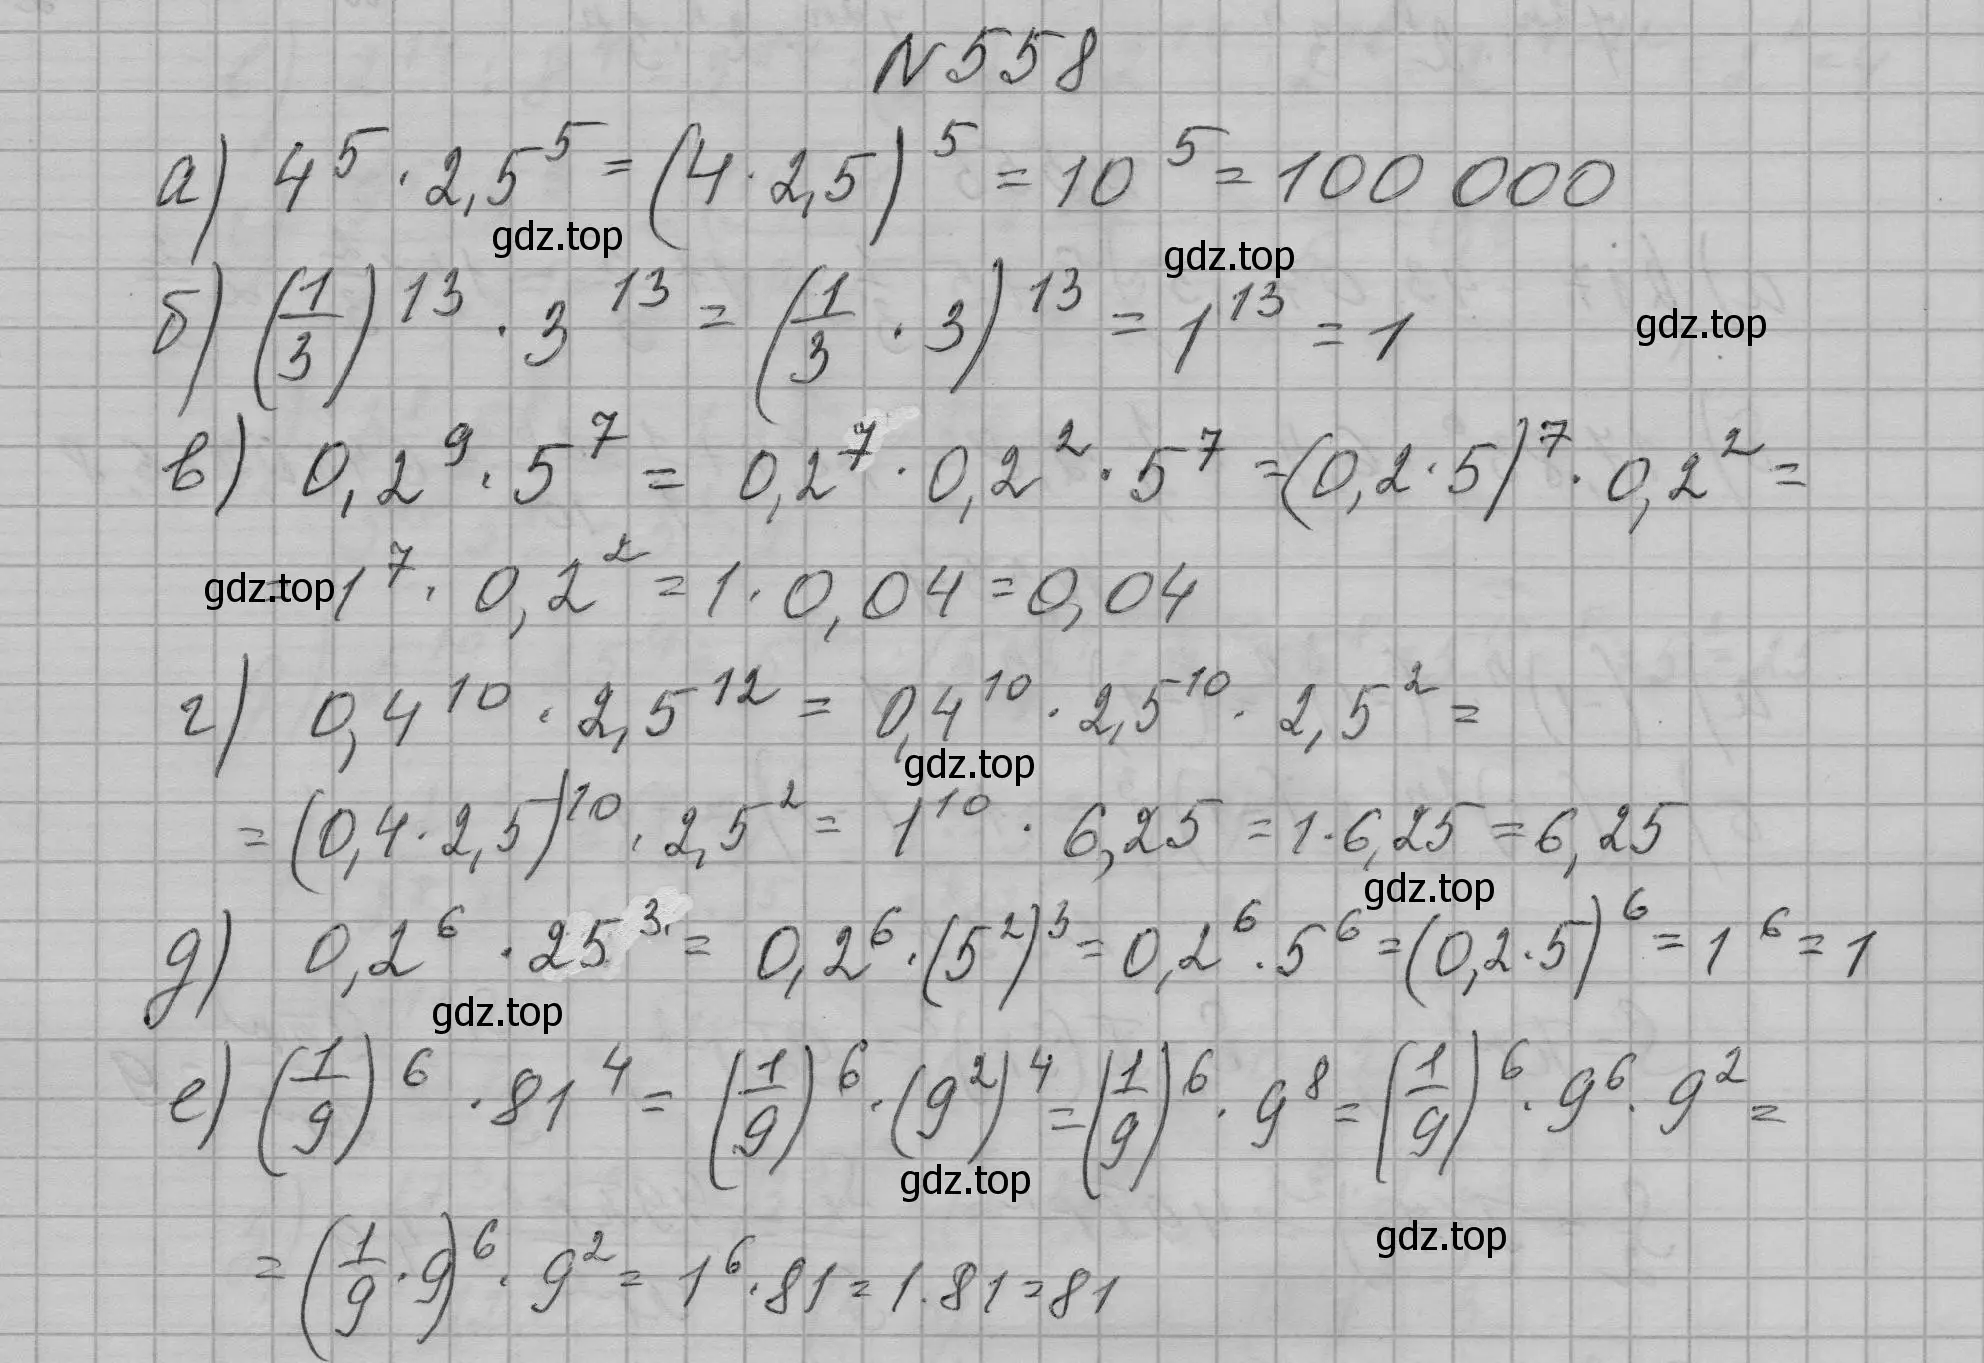 N558
а) 4⁵ · 2,5⁵ = (4 · 2,5)⁵ = 10⁵ = 100 000
gdz.top
gdz.top
б) (1/3)¹³ · 3¹³ = (1/3 · 3)¹³ = 1¹³ = 1
gdz.top
в) 0,2⁹ · 5⁷ = 0,2⁷ · 0,2² · 5⁷ = (0,2 · 5)⁷ · 0,2² =
gdz.top
= 1⁷ · 0,2² = 1 · 0,04 = 0,04
г) 0,4¹⁰ · 2,5¹² = 0,4¹⁰ · 2,5¹⁰ · 2,5² =
gdz.top
= (0,4 · 2,5)¹⁰ · 2,5² = 1¹⁰ · 6,25 = 1 · 6,25 = 6,25
gdz.top
д) 0,2⁶ · 25³ = 0,2⁶ · (5²)³ = 0,2⁶ · 5⁶ = (0,2 · 5)⁶ = 1⁶ = 1
gdz.top
е) (1/9)⁶ · 81⁴ = (1/9)⁶ · (9²)⁴ = (1/9)⁶ · 9⁸ = (1/9)⁶ · 9⁶ · 9² =
gdz.top
gdz.top
= (1/9 · 9)⁶ · 9² = 1⁶ · 81 = 1 · 81 = 81